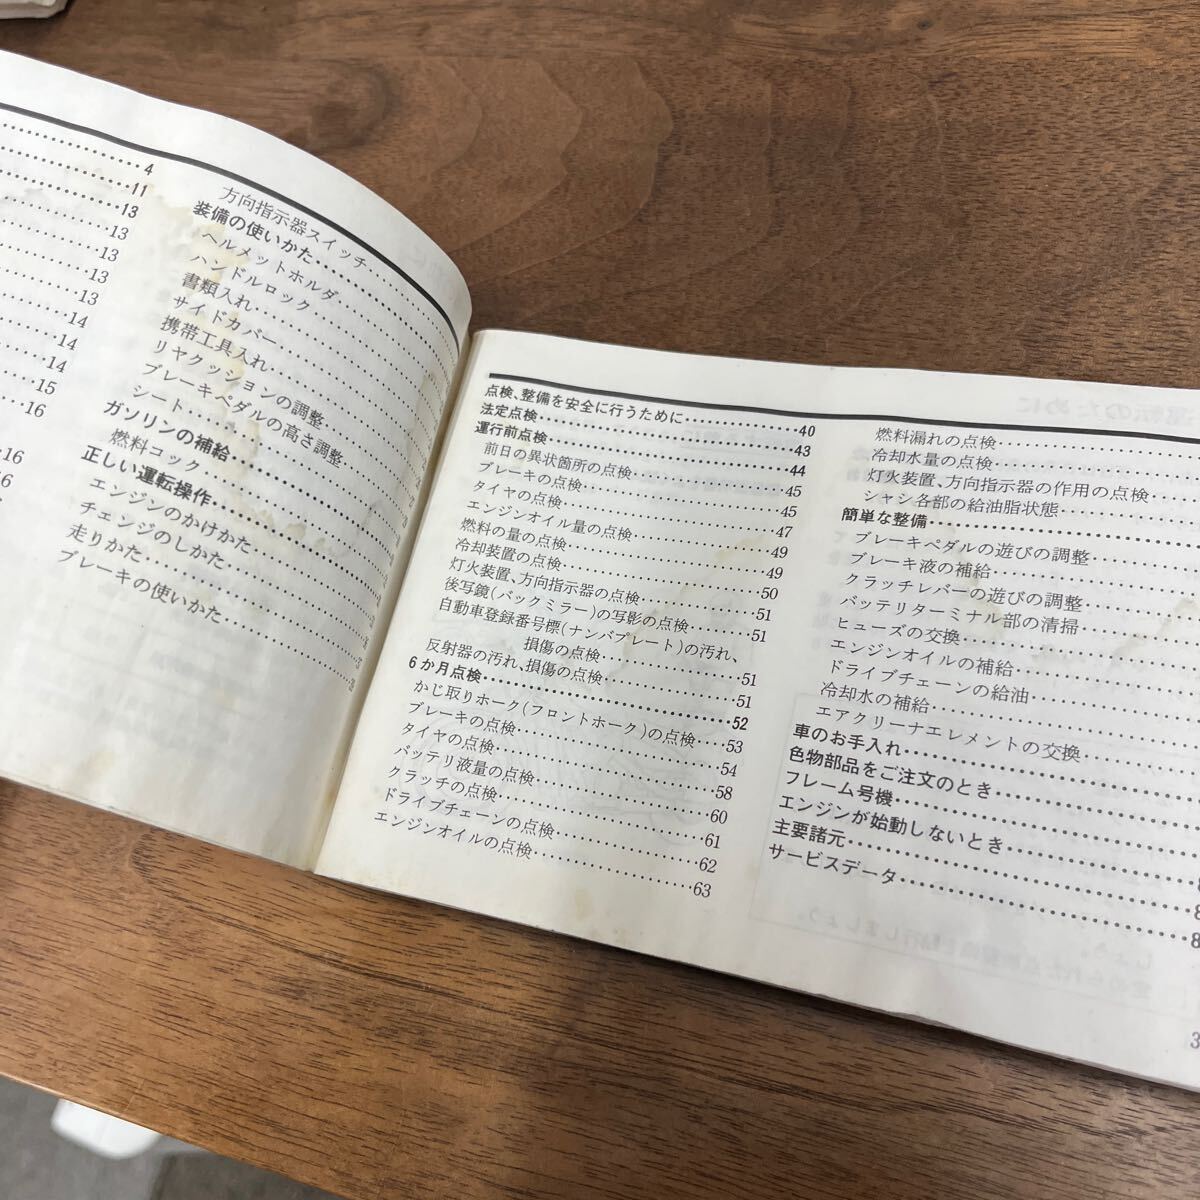 4
11
13
13
13
13
13
14
14
14
15
16
16
16
方向指示器スイッチ
装備の使いかた
ヘルメットホルダ
ハンドルロック
書類入れ
サイドカバー
携帯工具入れ
リヤクッションの調整
ブレーキペダルの高さ調整
シート
ガソリンの補給
燃料コック
正しい運転操作
エンジンのかけかた
チェンジのしかた
走りかた
ブレーキの使いかた
点検、整備を安全に行うために 40
法定点検 43
運行前点検 44
前日の異状箇所の点検 45
ブレーキの点検 45
タイヤの点検 47
エンジンオイル量の点検 49
燃料の量の点検 49
冷却装置の点検 50
灯火装置、方向指示器の点検 51
後写鏡(バックミラー)の写影の点検 51
自動車登録番号標(ナンバプレート)の汚れ、
損傷の点検 51
反射器の汚れ、損傷の点検 51
6か月点検 52
かじ取りホーク(フロントホーク)の点検 53
ブレーキの点検 54
タイヤの点検 58
バッテリ液量の点検 60
クラッチの点検 61
ドライブチェーンの点検 62
エンジンオイルの点検 63
燃料漏れの点検
冷却水量の点検
灯火装置、方向指示器の作用の点検
シャシ各部の給油脂状態
簡単な整備
ブレーキペダルの遊びの調整
ブレーキ液の補給
クラッチレバーの遊びの調整
バッテリターミナル部の清掃
ヒューズの交換
エンジンオイルの補給
ドライブチェーンの給油
冷却水の補給
エアクリーナエレメントの交換
車のお手入れ
色物部品をご注文のとき
フレーム号機
エンジンが始動しないとき
主要諸元
サービスデータ